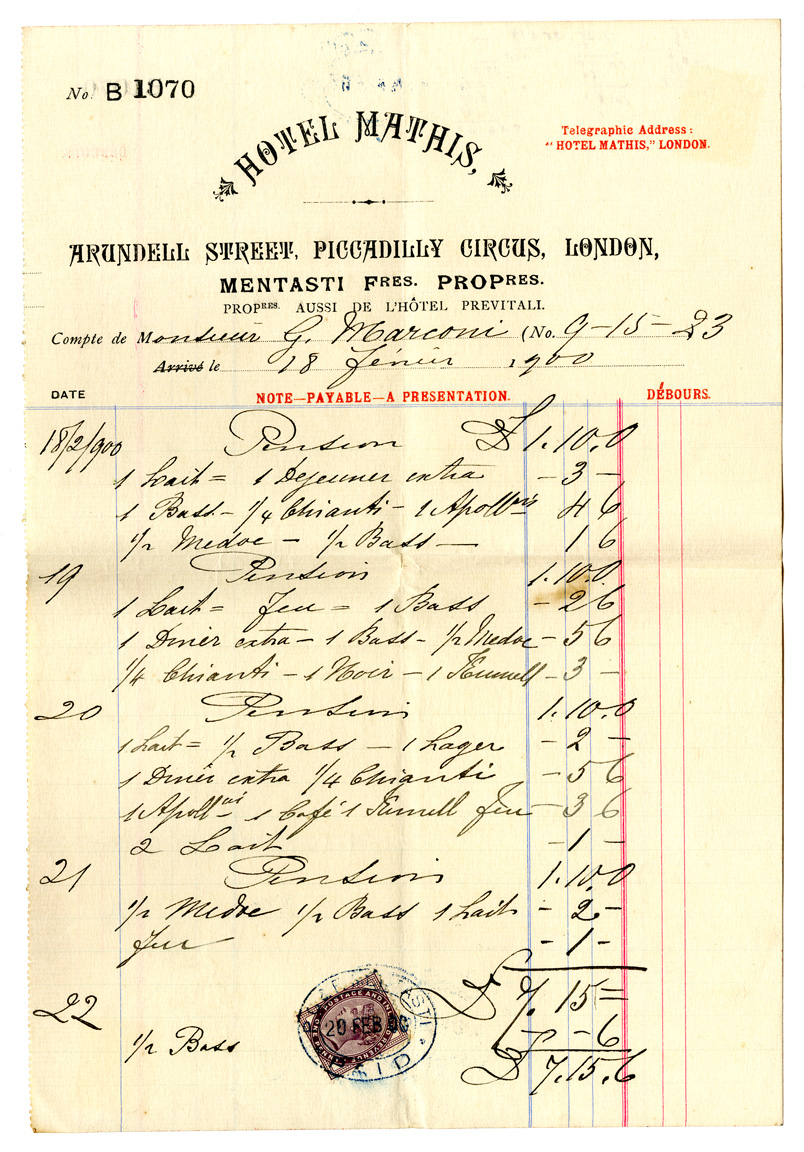 No. B 1070
HOTEL MATHIS,
Telegraphic Address:
"HOTEL MATHIS," LONDON.
ARUNDELL STREET, PICCADILLY CIRCUS, LONDON,
MENTASTI FRES. PROPRES.
PROPRES. AUSSI DE L'HÔTEL PREVITALI.
Compte de Monsieur G. Marconi (No. 9-15-23
Arrivé le 18 février 1900
DATE NOTE—PAYABLE—A PRESENTATION. DÉBOURS.
18/2/900 Pension £ 1.10.0
1 Lait = 1 Dejeuner extra - 3 -
1 Bass - 1/4 Chianti - 1 Apollnis 4 6
1/2 Medoc - 1/2 Bass — 1 6
19 Pension 1.10.0
1 Lait = Feu = 1 Bass - 2 6
1 Diner extra - 1 Bass - 1/2 Medoc - 5 6
1/4 Chianti - 1 Noir - 1 Kumell - 3 -
20 Pension 1.10.0
1 Lait = 1/2 Bass - 1 Lager - 2 -
1 Diner extra 1/4 Chianti - 5 6
1 Apollnis - 1 Café 1 Kumell Feu - 3 6
2 Lait - 1 -
21 Pension 1.10.0
1/2 Medoc 1/2 Bass 1 Lait - 2 -
Feu - 1 -
£ 7.15 =
22 1/2 Bass - - 6
£ 7.15.6
POSTAGE AND
20 FEB 00
PAID